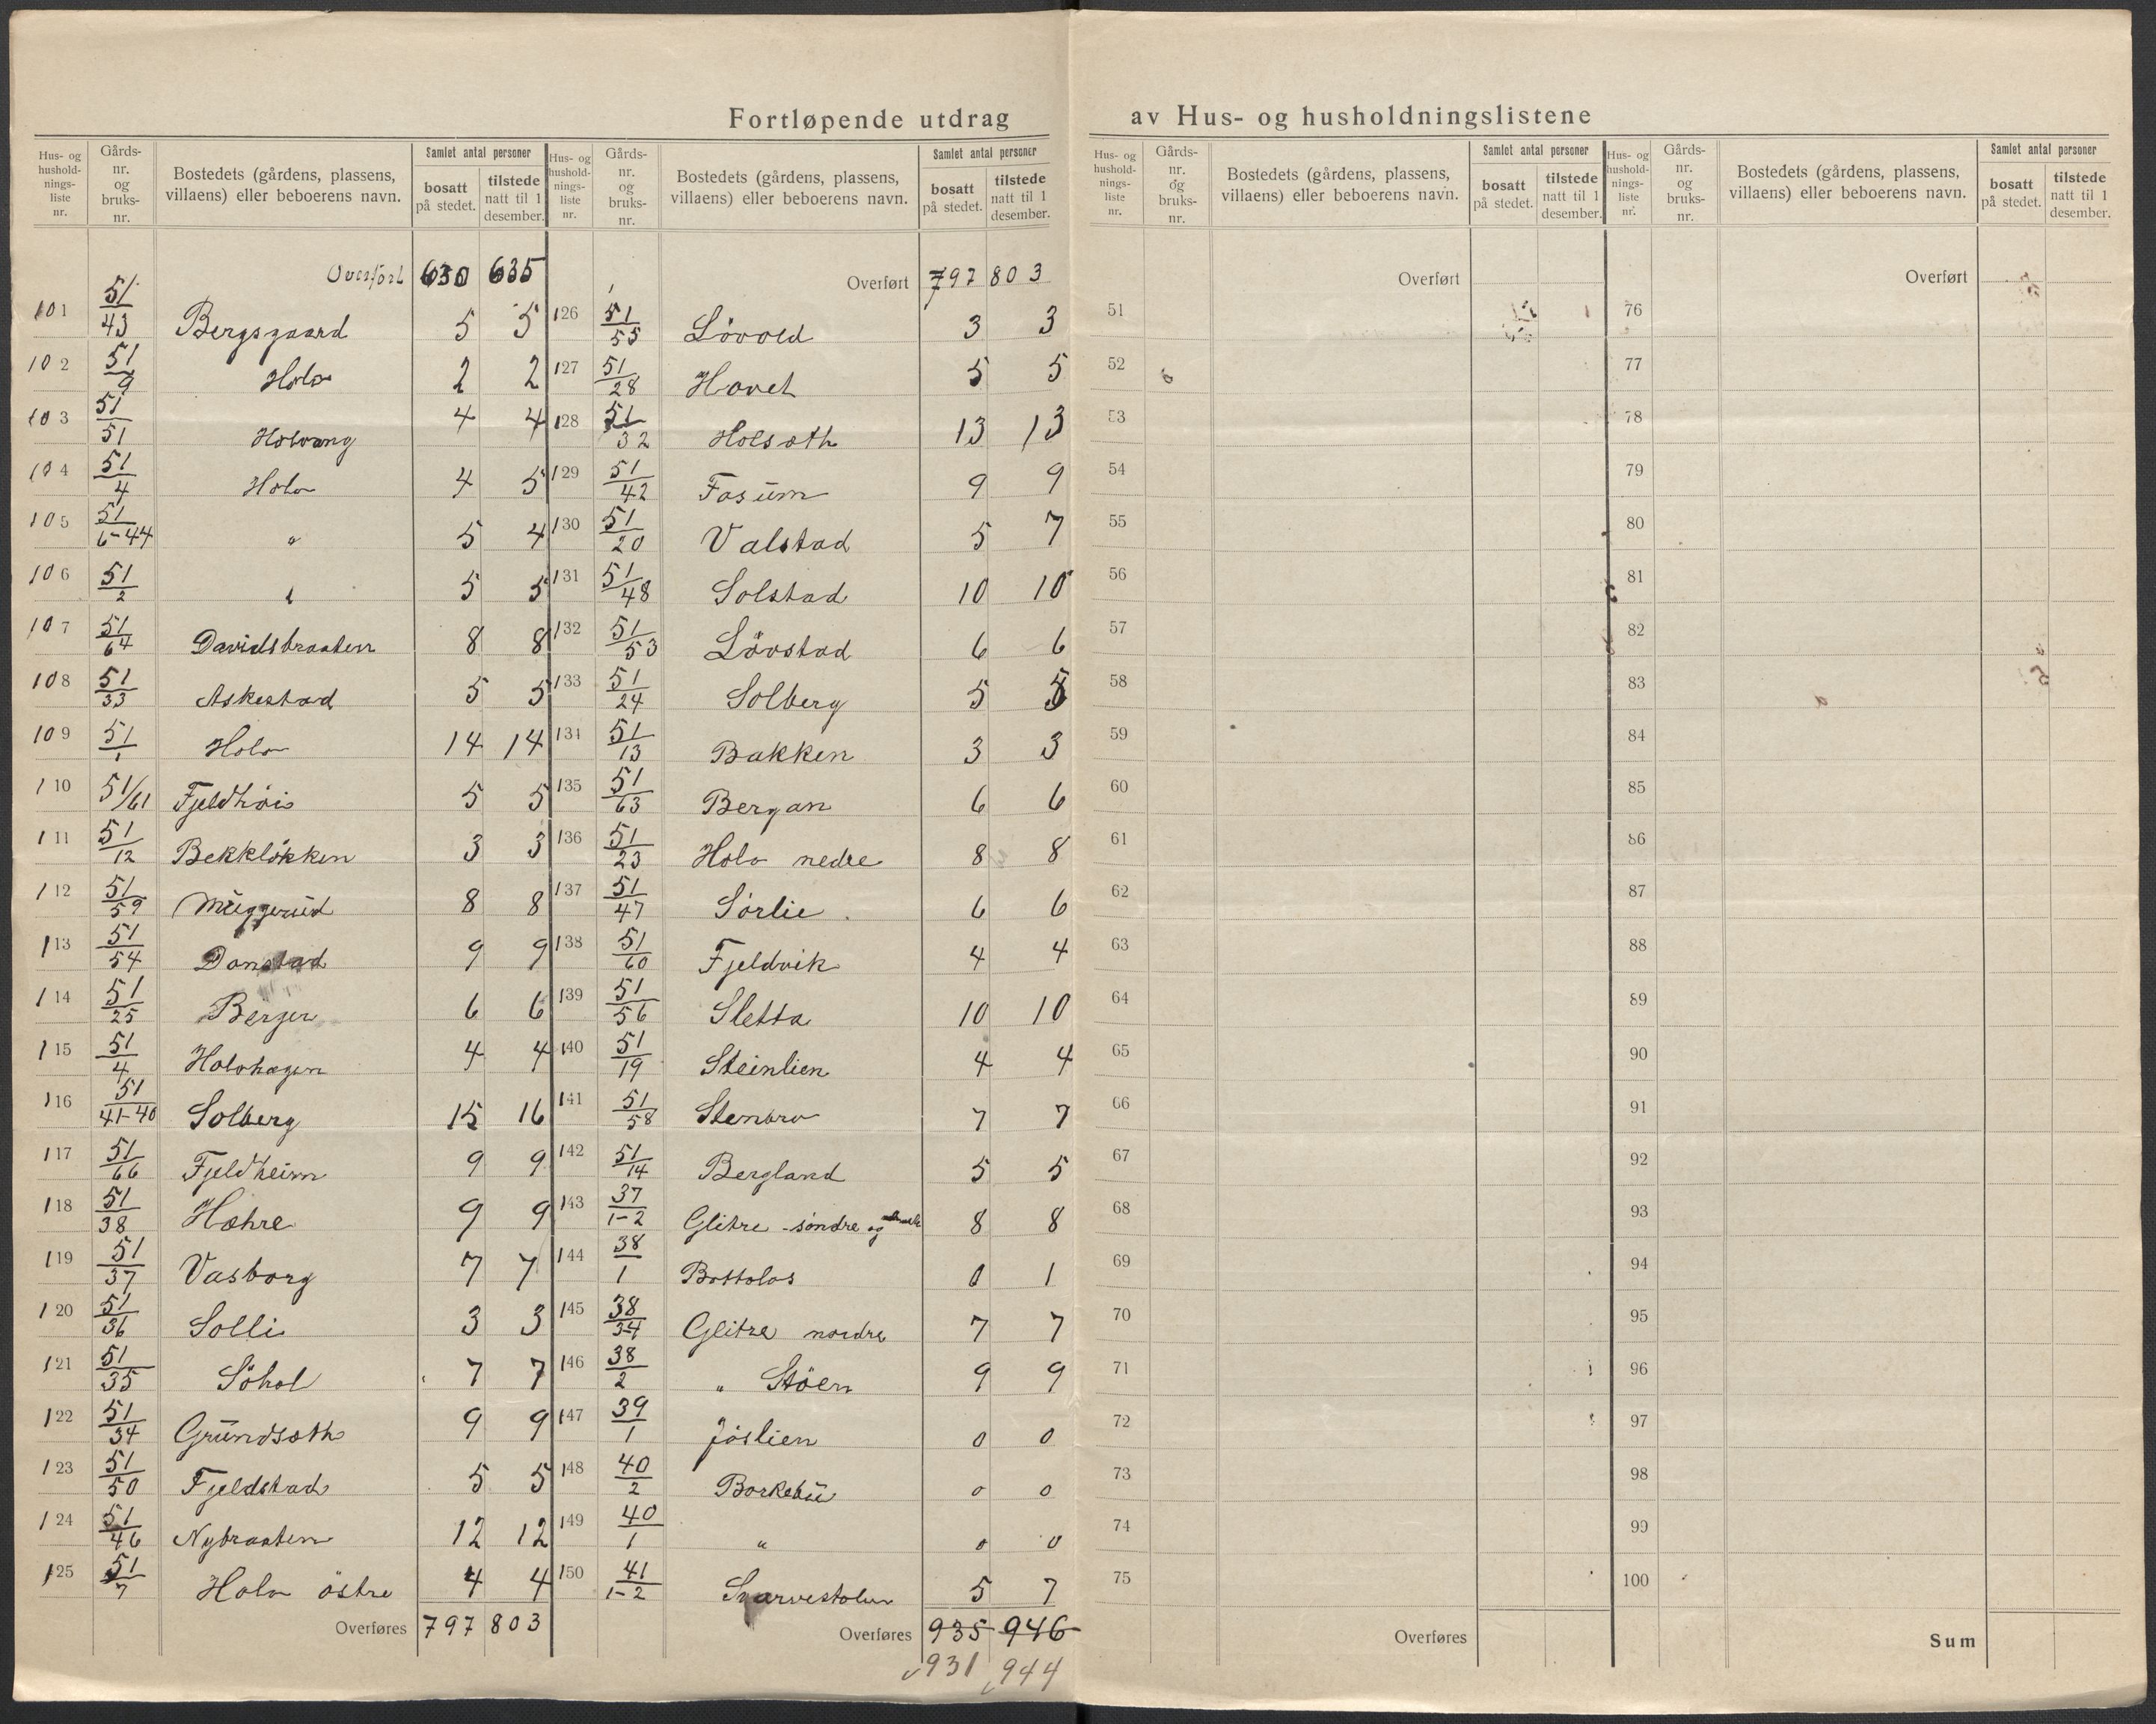 Fortløpende utdrag av Hus- og husholdningslistene
Hus- og hushold-nings-liste nr. | Gårds-nr. og bruks-nr. | Bostedets (gårdens, plassens, villaens) eller beboerens navn. | Samlet antal personer | bosatt på stedet. | tilstede natt til 1 desember.
Overført 630 635
101 51/43 Bergsgaard 5 5
102 51/9 Holo 2 2
103 51/51 Holvang 4 4
104 51/4 Holo 4 5
105 51/6-44 " 5 4
106 51/2 " 5 5
107 51/64 Davidsbraaten 8 8
108 51/33 Askestad 5 5
109 51/1 Holo 14 14
110 51/61 Fjeldhöis 5 5
111 51/12 Bekkløkken 3 3
112 51/59 Muggerud 8 8
113 51/54 Danstad 9 9
114 51/25 Berger 6 6
115 51/4 Holohagen 4 4
116 51/41-40 Solberg 15 16
117 51/66 Fjeldheim 9 9
118 51/38 Hæhre 9 9
119 51/37 Vasborg 7 7
120 51/36 Solli 3 3
121 51/35 Söhol 7 7
122 51/34 Grundsæth 9 9
123 51/50 Fjeldstad 5 5
124 51/46 Nybraaten 12 12
125 51/7 Holo östre 4 4
Overføres 797 803
Hus- og hushold-nings-liste nr. | Gårds-nr. og bruks-nr. | Bostedets (gårdens, plassens, villaens) eller beboerens navn. | Samlet antal personer | bosatt på stedet. | tilstede natt til 1 desember.
Overført 797 803
126 51/55 Lövold 3 3
127 51/28 Hovet 5 5
128 51/32 Holsæth 13 13
129 51/42 Fosum 9 9
130 51/20 Valstad 5 7
131 51/48 Solstad 10 10
132 51/53 Lövstad 6 6
133 51/24 Solberg 5 5
134 51/13 Bakken 3 3
135 51/63 Bergan 6 6
136 51/23 Holo nedre 8 8
137 51/47 Sörlie 6 6
138 51/60 Fjeldvik 4 4
139 51/56 Sletta 10 10
140 51/19 Steinlien 4 4
141 51/58 Stenbro 7 7
142 51/14 Bergland 5 5
143 37/1-2 Glitre söndre og 8 8
144 38/1 Bottolos 0 1
145 38/34 Glitre nordre 7 7
146 38/2 " Stöen 9 9
147 39/1 Jöslien 0 0
148 40/2 Borkebu 0 0
149 40/1 " 0 0
150 41/1-2 5 7
Overføres 935 946
931 944
Hus- og hushold-nings-liste nr. | Gårds-nr. og bruks-nr. | Bostedets (gårdens, plassens, villaens) eller beboerens navn. | Samlet antal personer | bosatt på stedet. | tilstede natt til 1 desember.
Overført
51
52
53
54
55
56
57
58
59
60
61
62
63
64
65
66
67
68
69
70
71
72
73
74
75
Overføres
Hus- og hushold-nings-liste nr. | Gårds-nr. og bruks-nr. | Bostedets (gårdens, plassens, villaens) eller beboerens navn. | Samlet antal personer | bosatt på stedet. | tilstede natt til 1 desember.
Overført
76
77
78
79
80
81
82
83
84
85
86
87
88
89
90
91
92
93
94
95
96
97
98
99
100
Sum